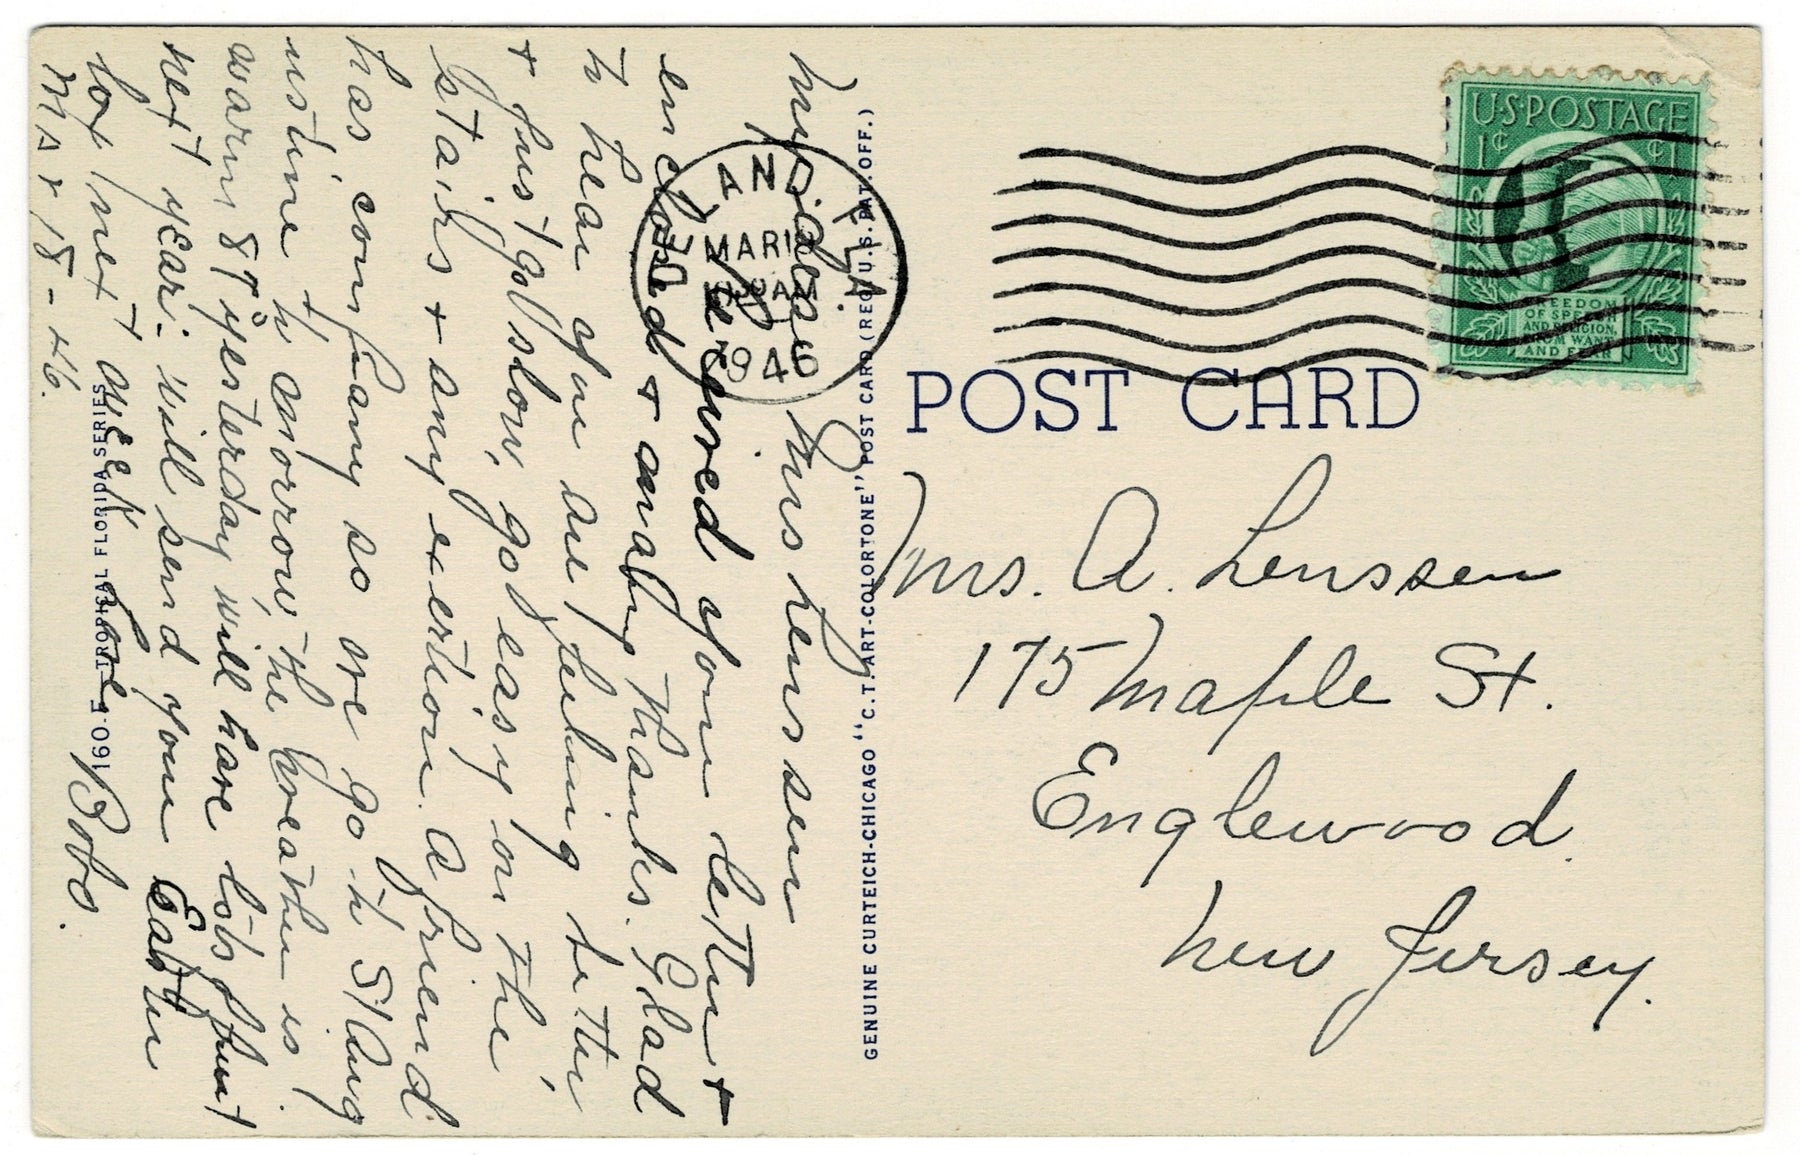 My dear Mrs Lenssen
Received your letter +
enclosed + many thanks. Glad
to hear you are feeling better
+ just go slow, go easy on the
stairs + any exertion. A friend
has company so we go to St Aug
ustine to morrow, the weather is
warm 87° yesterday will have lots fruit
next year: will send you Easter
box next week Love
Mar 18 - 46. Bobo.
160-E TROPICAL FLORIDA SERIES
GENUINE CURTEICH-CHICAGO "C.T. ART-COLORTONE" POST CARD (REG. U.S. PAT. OFF.)
FLA
MAR 18
AM
1946
U.S. POSTAGE
1¢ 1¢
FREEDOM
OF SPEECH
AND RELIGION,
FROM WANT
AND FEAR
POST CARD
Mrs. A. Lenssen
175 Maple St.
Englewood.
New Jersey.